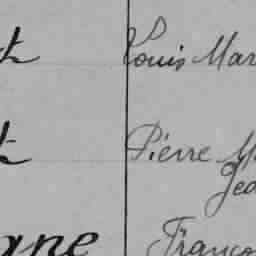 Louis Mar
Pierre M
Jea
gne Franço